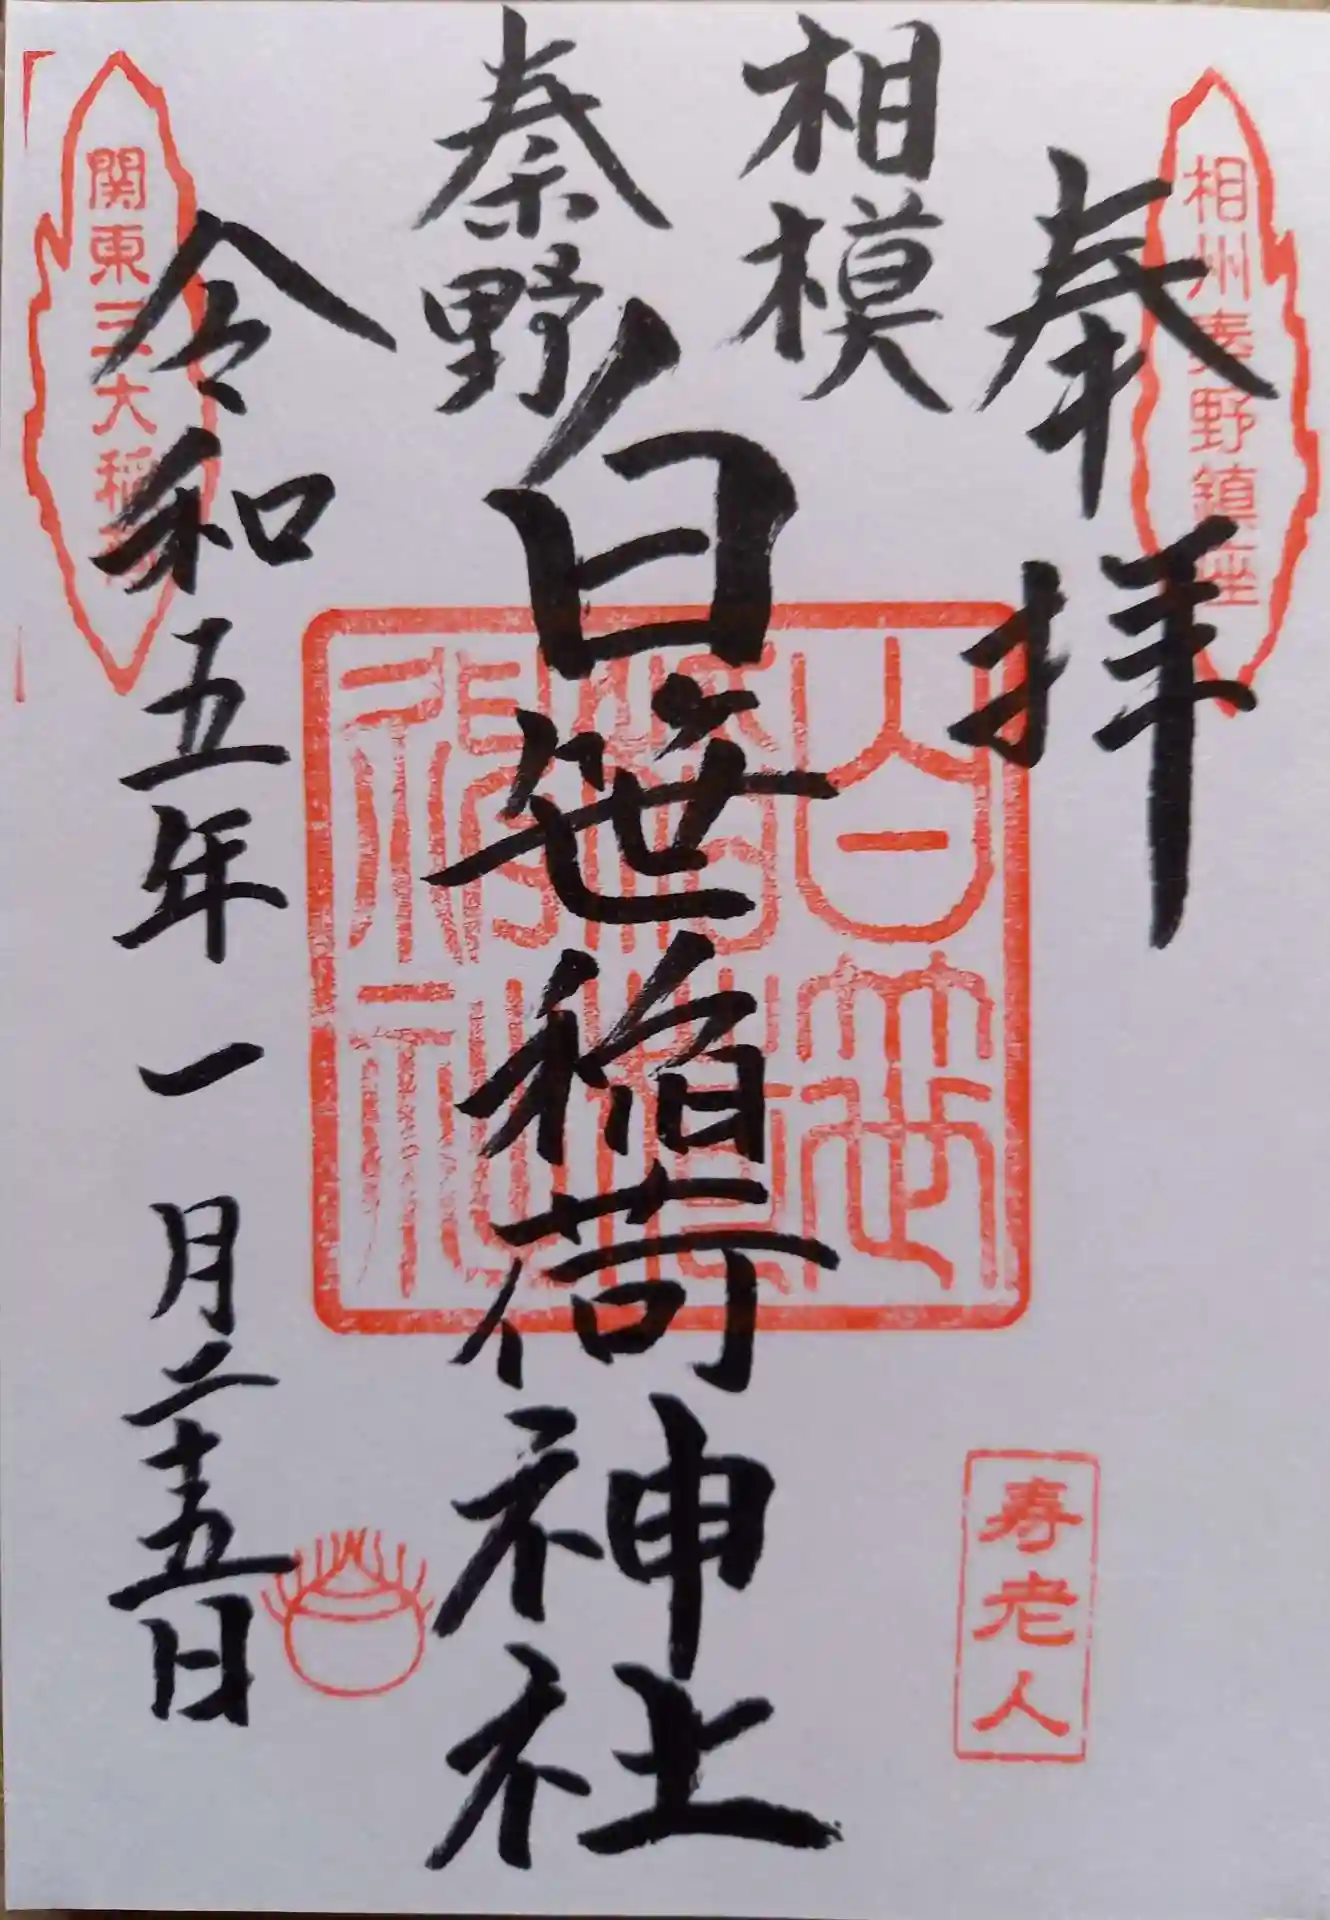 相州秦野鎮座
奉拝
相模
秦野
白笹稲荷神社
白笹
稲荷
神社
寿老人
令和五年一月二十五日
関東三大稲荷